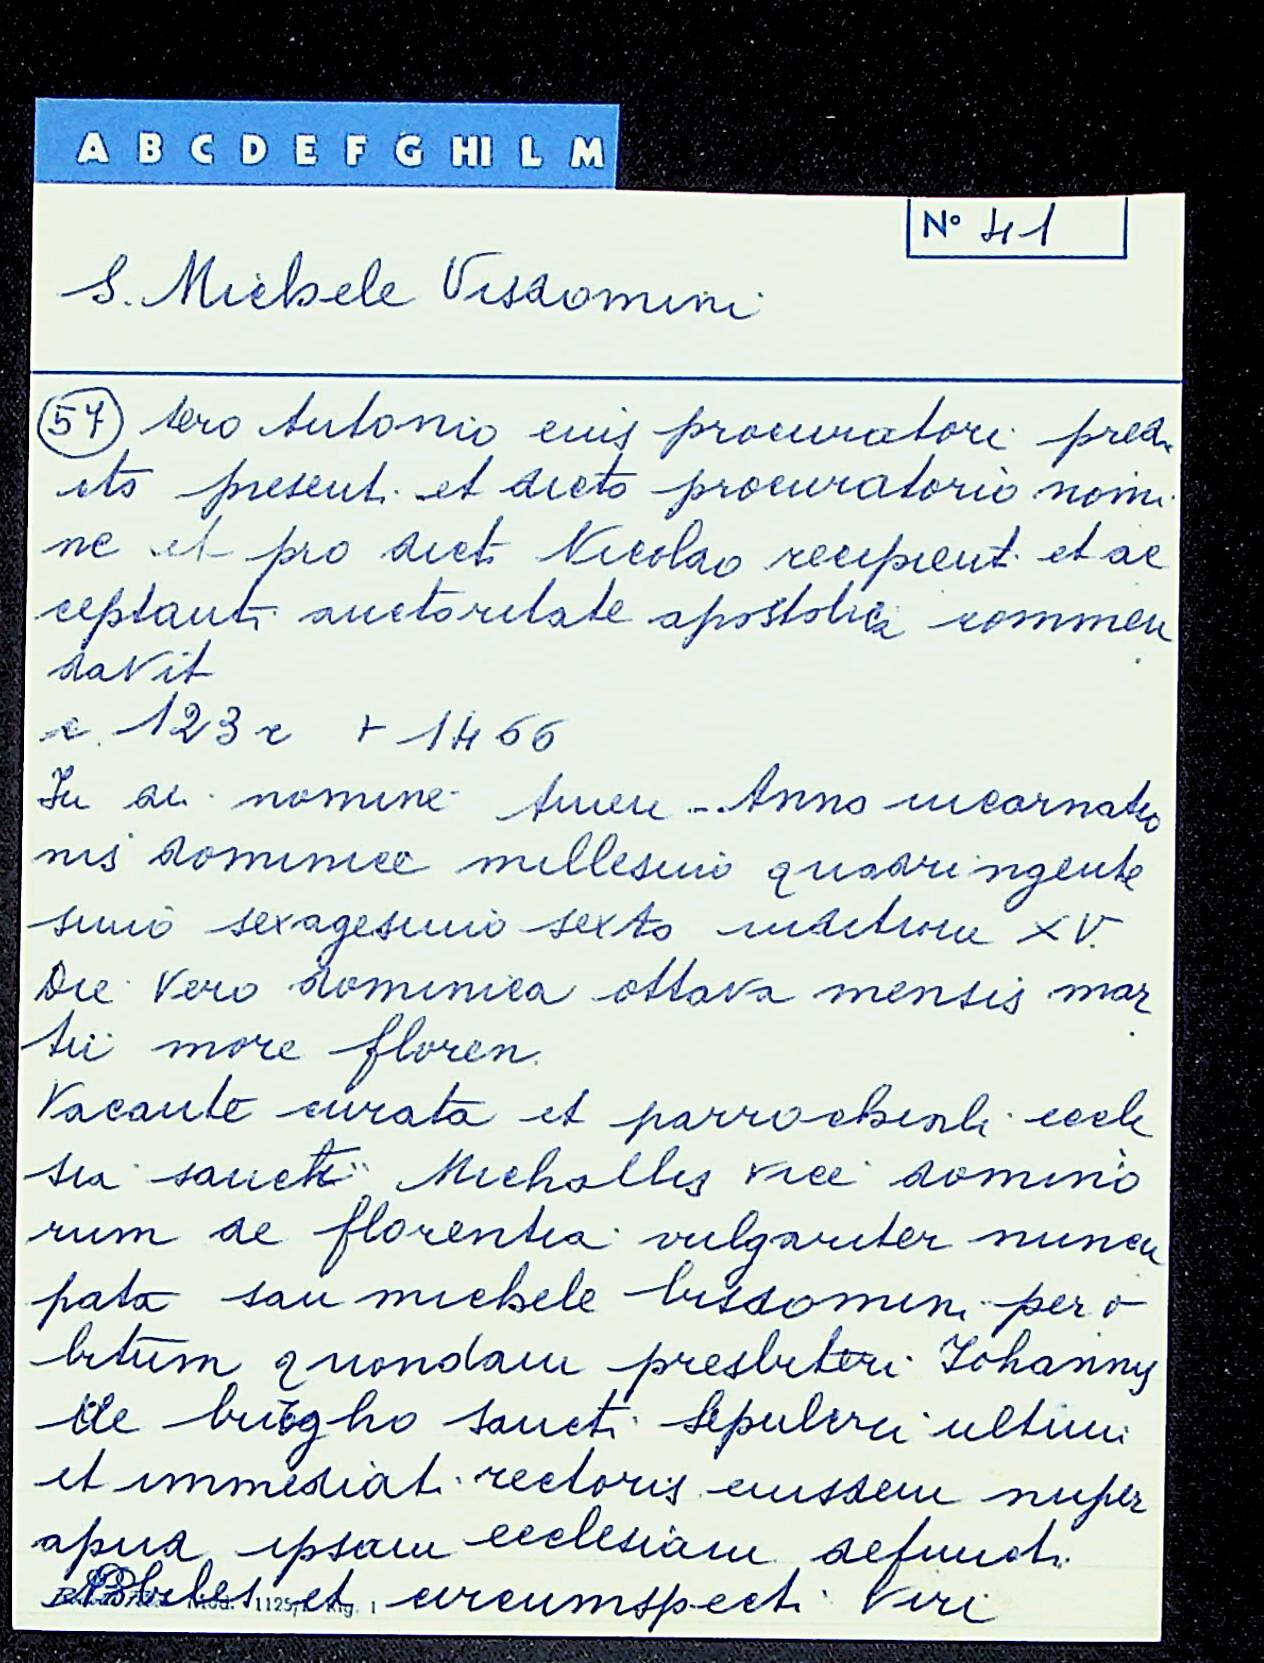 A B C D E F G HI L M
Nº 41
S. Michele Visdomini
57 tero Antonio eius procuratori predi
cto presenti et dicto procuratorio nomi
ne et pro dicto Nicolao recipienti et ac
ceptanti auctoritate apostolica commen
davit
c. 123 r + 1466
In dei nomine Amen - Anno incarnatio
nis dominice millesimo quadringente
simo sexagesimo sexto indictione XV.
Die vero dominica ottava mensis mar
tii more floren.
Vacante curata et parrochiali eccle
sia sancti Michallis vice domino
rum de florentia vulgariter nuncu
pata san michele bisdomini per o
bitum quondam presbiteri Johannis
de burgho sancti Sepulcri ultimi
et immediati rectoris eiusdem nuper
apud ipsam ecclesiam defuncti.
Nobiles et circumspecti Viri
Mod. 1125/ Rig. 1